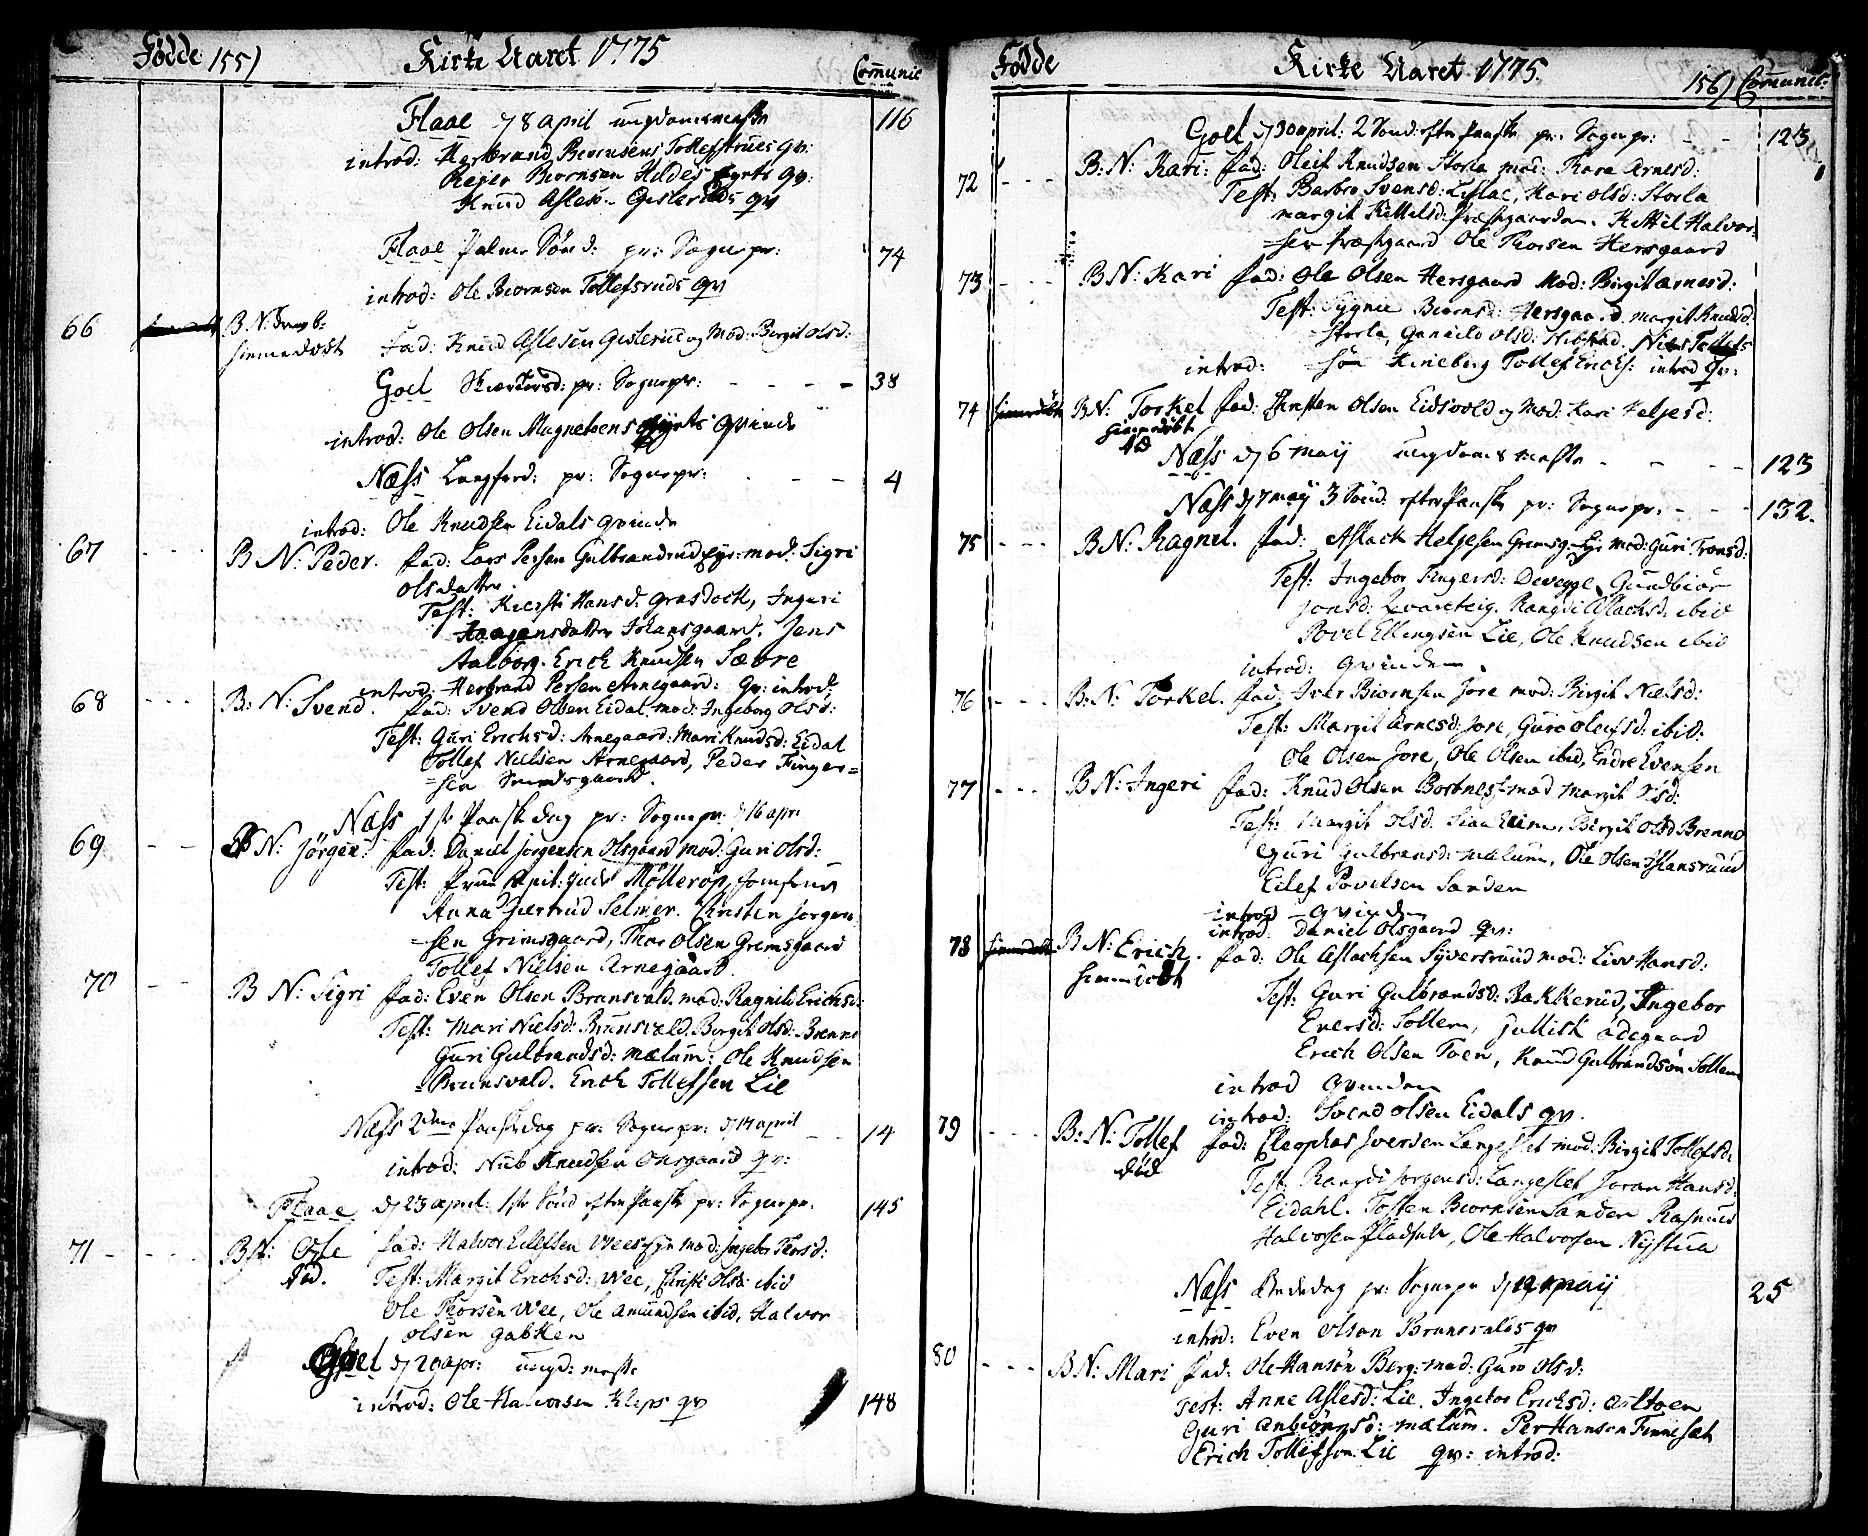 Fødde 155) Kirke Aaret 1775 Communic
Flaae d 8 april ungdoms messe 116
introd: Herbrand Biørnsens Tollefsrues qv:
Reier Biørnsen Hildes qv:
Knud Aslesens Gislerüds qv
Flaae Palme Sønd: pr: Sogne pr: 74
introd: Ole Biørnsen Tollefsruds qv
66 B:N:
hiemedøbt fad: Knud Aslesen Gislerud og Mod: Birgit Olsd:
Goel Skiertorsd: pr: Sognepr: - - - - 38
introd: Ole Olsen Magnetens qvinde
Næss Langfred: pr: Sognepr: - - - 4
introd: Ole Knudsen Eidals qvinde
67 - - - B N: Peder. fad: Lars Persen Gulbrandrud mod: Sigri
olsdatter
Test: Kiersti Hansd: Grasdock, Inguri
Haagensdatter Johansgaard. Jens
Aalborg. Erich Knudsen Sævre
introd: Herbrand Persen Arnegaard: qv: introd:
68 - - - B: N: Svend. fad: Svend Olsen Eidal mod: Ingeborg Olsd:
Test: Guri Erichsd: Arnegaard: Mari Knudsd: Eidal
Tollef Nielsen Arnegaard, Peder Finger=
=sen Smedsgaard.
Næss 1ste Paaske dag pr: Sogne pr: d 16 apr:
69 - - B N: Jörgen: fad: Daniel Jörgensen Olsgaard Mod: Guri Olsd:
Test: frue Capit: Möllerop, Jomfrue
Anna Giertrud Selmer. Christen Jorgen
=sen Grimsgaard, Thor Olsen Grimsgaard
Tollef Nielsen Arnegaard.
70 - - B N: Sigri fad: Even Olsen Brunsvald. mod: Ragnild Erichsd:
Test: Mari Nielsd: Brunsvald. Birgit Olsd: Brenno
Guri Gulbrandsd: Mælum: Ole Knudsen
Brunsvald. Erich Tollefsen Lie
Næss 2den Paaskedag pr: Sognepr: d 17 april - - 14
introd: Niels Knudsen Onsgaard qv:
Flaae d 23 april: 1ste Sönd efter Paaske pr: Sogne pr. 145
71 - - - - B N: Ole fad: Halvor Eilefsen Wees mod: Ingebor Thorsd:
død. Test: Margit Erichsd: Wee, Christi Olsd: ibid
Ole Thorsen Wee, Ole Amundsen ibid, Halvor
Olsen Gabken
Goel d 29 apr: ungd: messe
introd: Ole Halvorsen Kleps qv 148
Fødde Kirke Aaret 1775. 156) Communic:
Goel d 30 april: 2 Sönd: efter Paaske pr. Sognepr: - - 123
72 - - - B: N: Kari: fad: Oleif Knudsen Storla mod: Kara Arnesd:
Test: Barbro Svensd: Lislac, Kari Olsd: Storla
Margit Kittelsd: Præstgaarden. Kittil Halvor
=sen Præstgaard Ole Thorsen Hersgaard
73 - - - B N: Kari fad: Ole Olsen Hersgaard Mod: Birgit Arnesd:
Test: Sygnue Biørnsd: Hersgaard, Margit Knudsd:
Storla, Gunild Olsd: Nibstad. Niels Tollefs
introd: =søn Kineberg Tollef Erichs: introd qv:
74 BN: Torkel fad: Christen Olsen Eidsvold og Mod: Kari Heljesd:
hiemedöbt
død
Næss d 6 maij ungdoms messe - - - - 123
Næss d 7 maij 3 Sönd. efter Paaske pr: Sognepr: - - - 132.
75 - - - BN: Ragnel. fad: Aslack Heljesen Grimsg. mod: Guri Tronsd:
Test: Ingebor Fingersd: Devegge, Gundbiør
Jonsd: Qvarteig. Rangdi Aslachsd: ibid
Povel Ellingsen Lie, Ole Knudsen ibid
introd: qvinden.
76 - - - B: N: Torkel. fad: Iver Biørnsen Jore mod: Birgit Nielsd:
Test: Margit Arnesd: Jore, Guro Oleifsd: ibid.
Ole Olsen Jore, Ole Olsen ibid, Endre Evensen
77 - - - BN: Ingeri fad: Knud Olsen Bortnes mod Margit
Test: Margit Olsd: Birgit Olsd Brenno
Guri Gulbransd: Mælum, Ole Olsen Hansruud
Eilef Povelsen Sanden
introd qvinden
introd. Daniel Olsgaard qv:
78 BN: Erich. fad: Ole Aslachsen Syversruud mod: Livv Hansd:
hiemdöbt
Test: Guri Gulbrandsd: Bakkerud, Ingebor
Eversd: Sollem, Gullisk Ødegaard
Erich Olsen Toen, Knud Gulbrandsøn Sollem
introd qvinden
introd. Svend Olsen Eidals qv.
79 - - - B: N: Tollef fad: Cleophas Iversen Langeslet mod: Birgit Tollefsd:
død
Test: Rangdi Jorgensd: Langeslet Joran Hansd:
Eidahl. Tosten Biornsen Sanden Rasmus
Halvorsen Pladsen, Ole Halvorsen Nystua
Næss Bededag pr: Sognepr d 12 maij 25
introd: Even Olsen Brunsvalds qv
80 - - - BN: Mari fad: Ole Hansøn Berg: mod: Guro Olsd:
Test: Anne Aslesd: Lie. Ingebor Erichsd:
Guri Mælum. Per Hansen Finneset
Erich Tollefson Lie qv: introd: